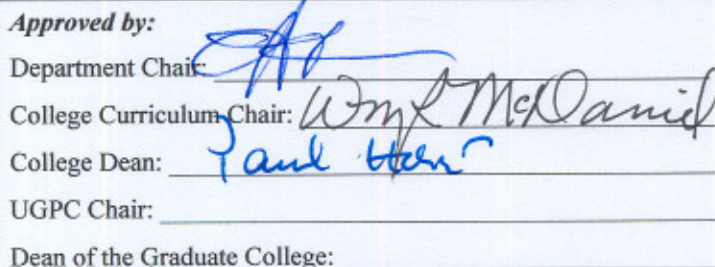 Approved by:
Department Chair:
College Curriculum Chair: Wm L McDaniel
College Dean: Paul
UGPC Chair:
Dean of the Graduate College: